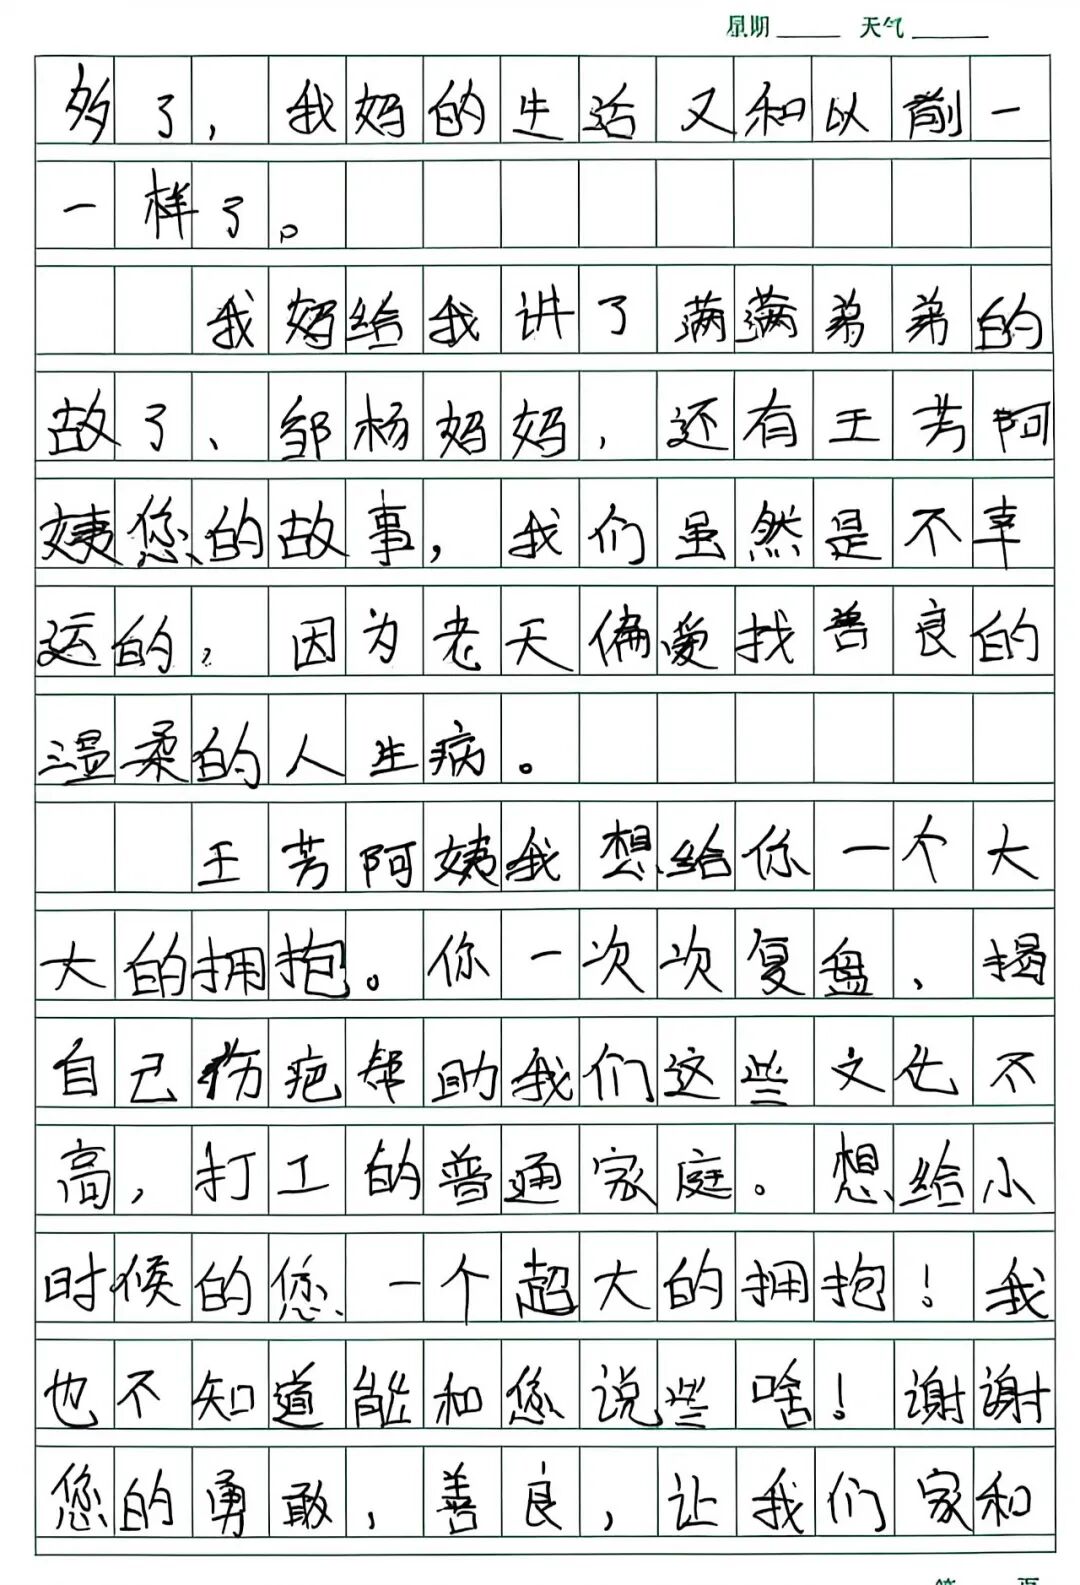 星期 天气
多了，我妈的生活又和以前一
一样了。
我妈给我讲了满满弟弟的
故了、邹杨妈妈，还有王芳阿
姨您的故事，我们虽然是不幸
运的，因为老天偏爱找善良的
温柔的人生病。
王芳阿姨我想给你一个大
大的拥抱。你一次次复盘、揭
自己伤疤帮助我们这些文化不
高，打工的普通家庭。想给小
时候的您一个超大的拥抱！我
也不知道能和您说些啥！谢谢
您的勇敢，善良，让我们家和